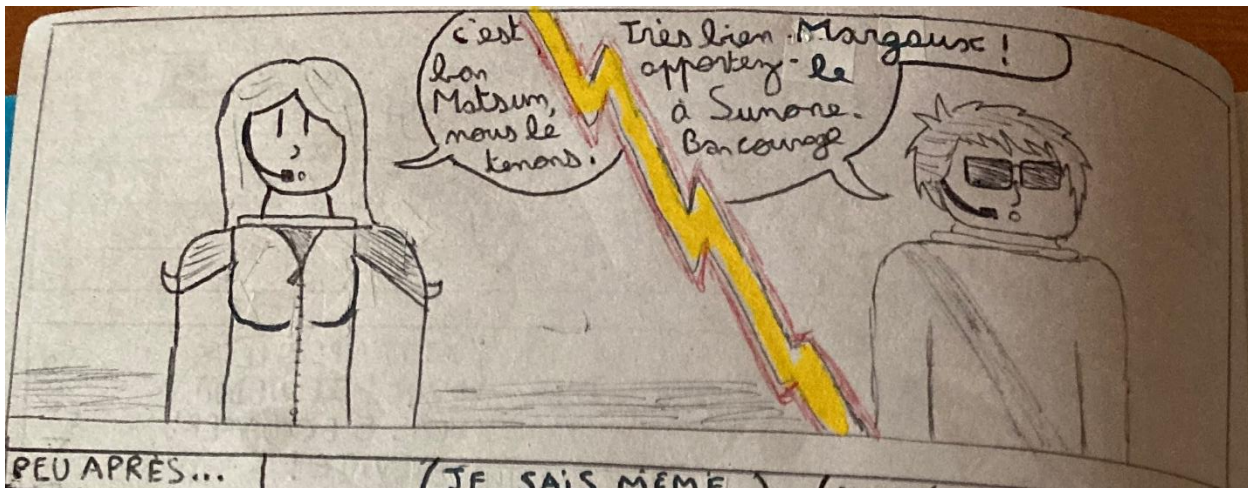 c'est
bon
Matsum,
nous le
tenons.
Très bien Margaux !
apportez-le
à Sunone.
Bon courage
PEU APRÈS...
JE SAIS MÊME